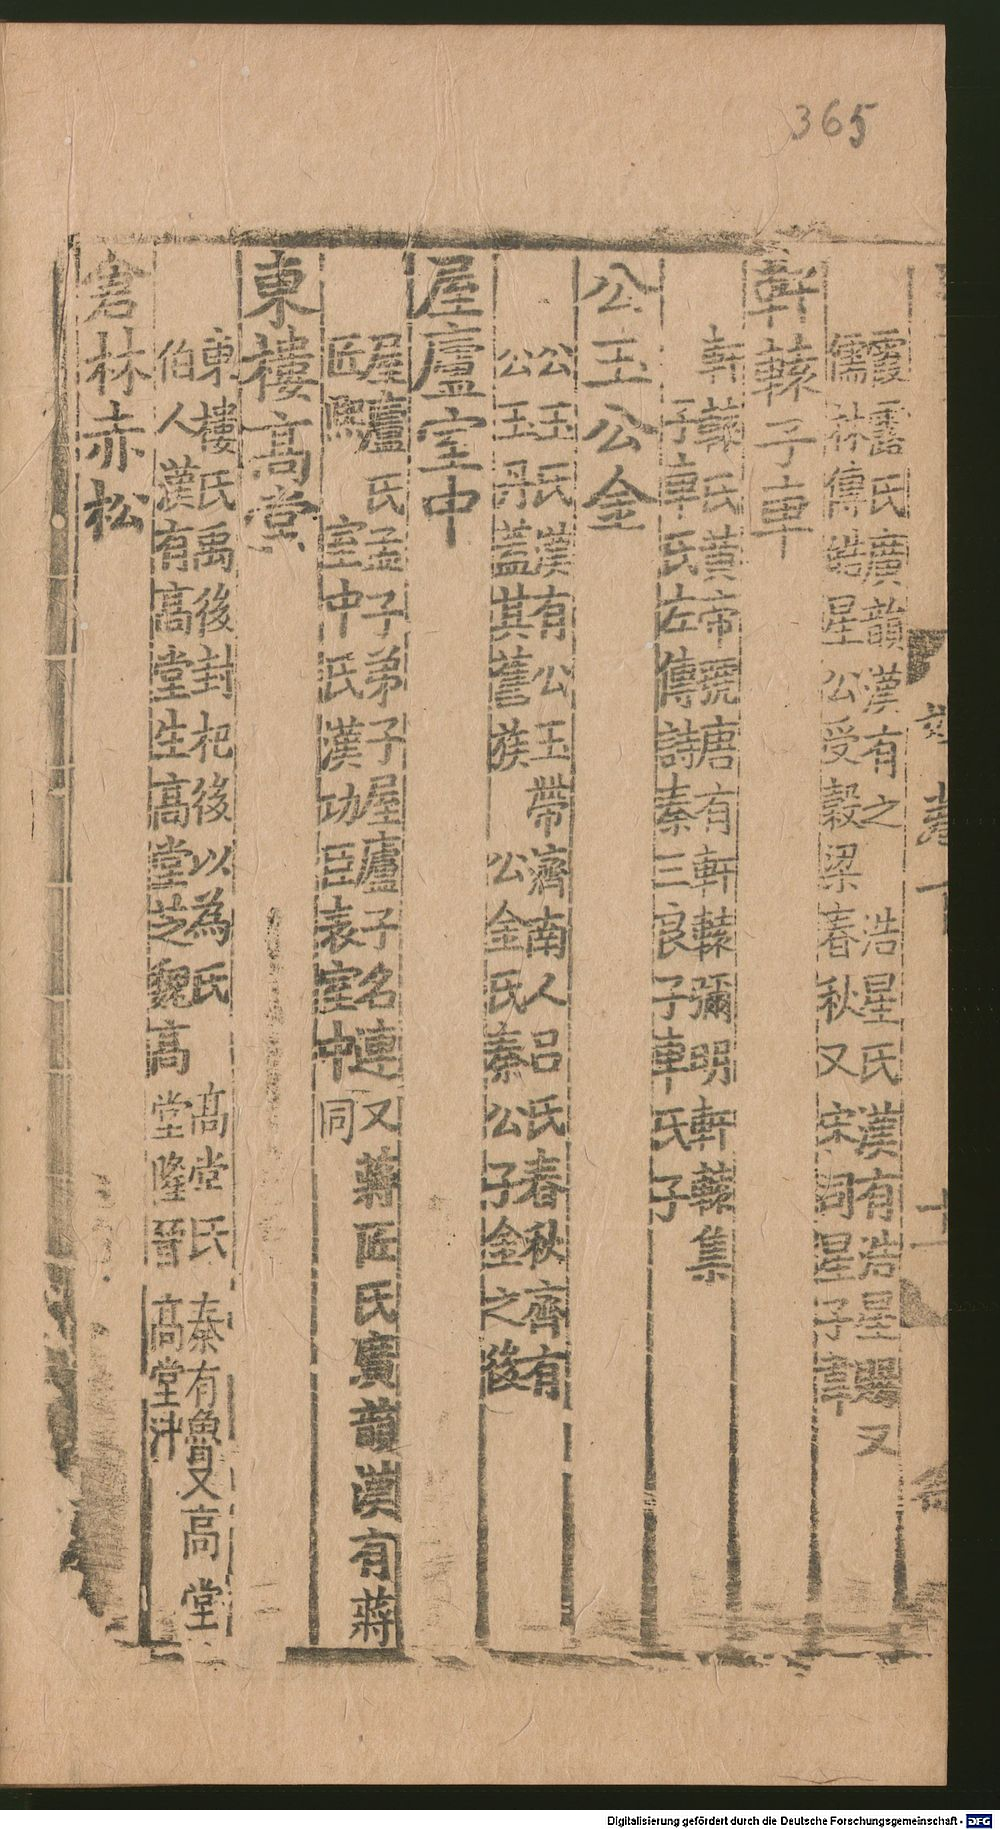 365
霞露氏廣韻漢有之　浩星氏漢有浩星賜又
儒林傳浩星公受穀梁春秋又宋司星子韋
軒轅子車
軒轅氏黃帝號唐有軒轅彌明軒轅集
子車氏左傳詩秦三良子車氏子
公玉公金
公玉氏漢有公玉帶濟南人呂氏春秋齊有
公玉丹蓋其舊族　公金氏秦公子金之後
屋廬室中
屋廬氏孟子弟子屋廬子名連又蔣匠氏廣韻漢有蔣
匠熙　室中氏漢功臣表室中同
東樓高堂
東樓氏禹後封杞後以為氏　高堂氏秦有魯又高堂
伯人漢有高堂生高堂芝魏高堂隆晉高堂沖
倉林赤松
十一
Digitalisierung gefördert durch die Deutsche Forschungsgemeinschaft - DFG